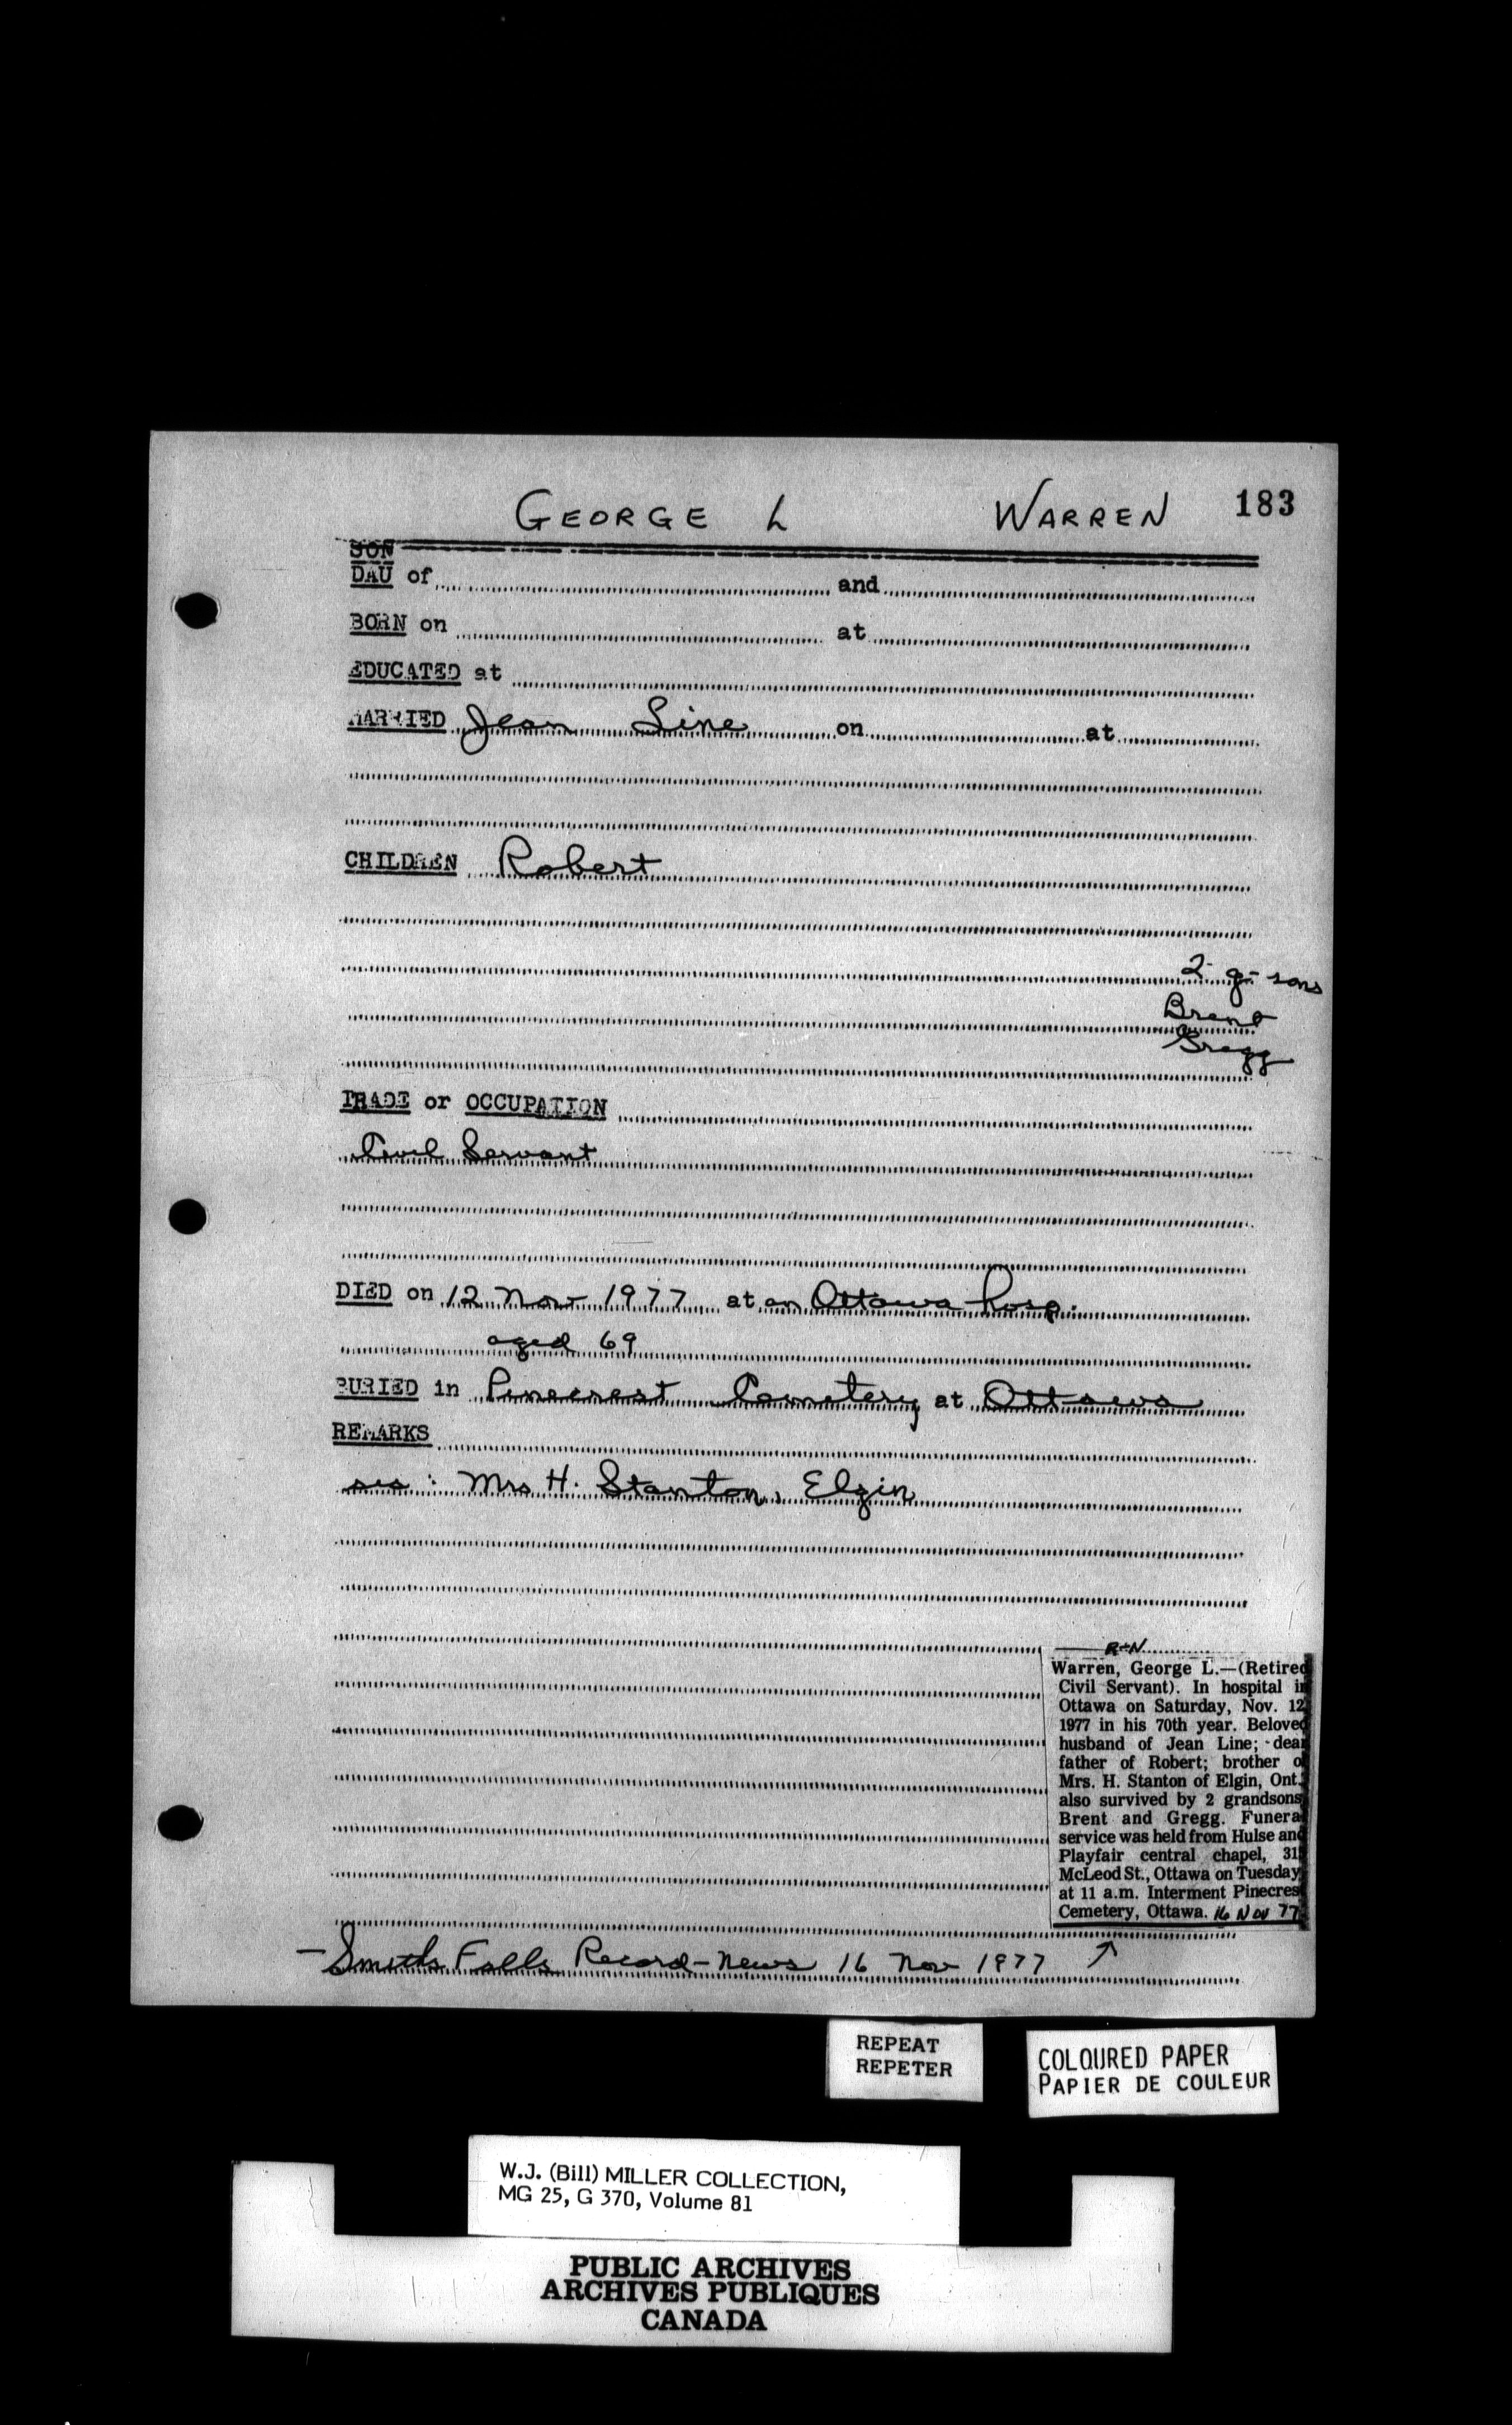 GEORGE L WARREN 183
SON
DAU of and
BORN on at
EDUCATED at
MARRIED Jean Line on at
CHILDREN Robert
2 g-sons
Brent
Gregg
TRADE or OCCUPATION
Civil Servant
DIED on 12 Nov 1977 at an Ottawa hosp.
aged 69
BURIED in Pinecrest Cemetery at Ottawa
REMARKS
sis: Mrs H. Stanton, Elgin
R-N
Warren, George L.—(Retired
Civil Servant). In hospital in
Ottawa on Saturday, Nov. 12
1977 in his 70th year. Beloved
husband of Jean Line; dear
father of Robert; brother of
Mrs. H. Stanton of Elgin, Ont.
also survived by 2 grandsons
Brent and Gregg. Funera
service was held from Hulse and
Playfair central chapel, 31
McLeod St., Ottawa on Tuesday
at 11 a.m. Interment Pinecres
Cemetery, Ottawa. 16 Nov 77
—Smiths Falls Record-News 16 Nov 1977 ↗
REPEAT
REPETER
COLOURED PAPER
PAPIER DE COULEUR
W.J. (Bill) MILLER COLLECTION,
MG 25, G 370, Volume 81
PUBLIC ARCHIVES
ARCHIVES PUBLIQUES
CANADA